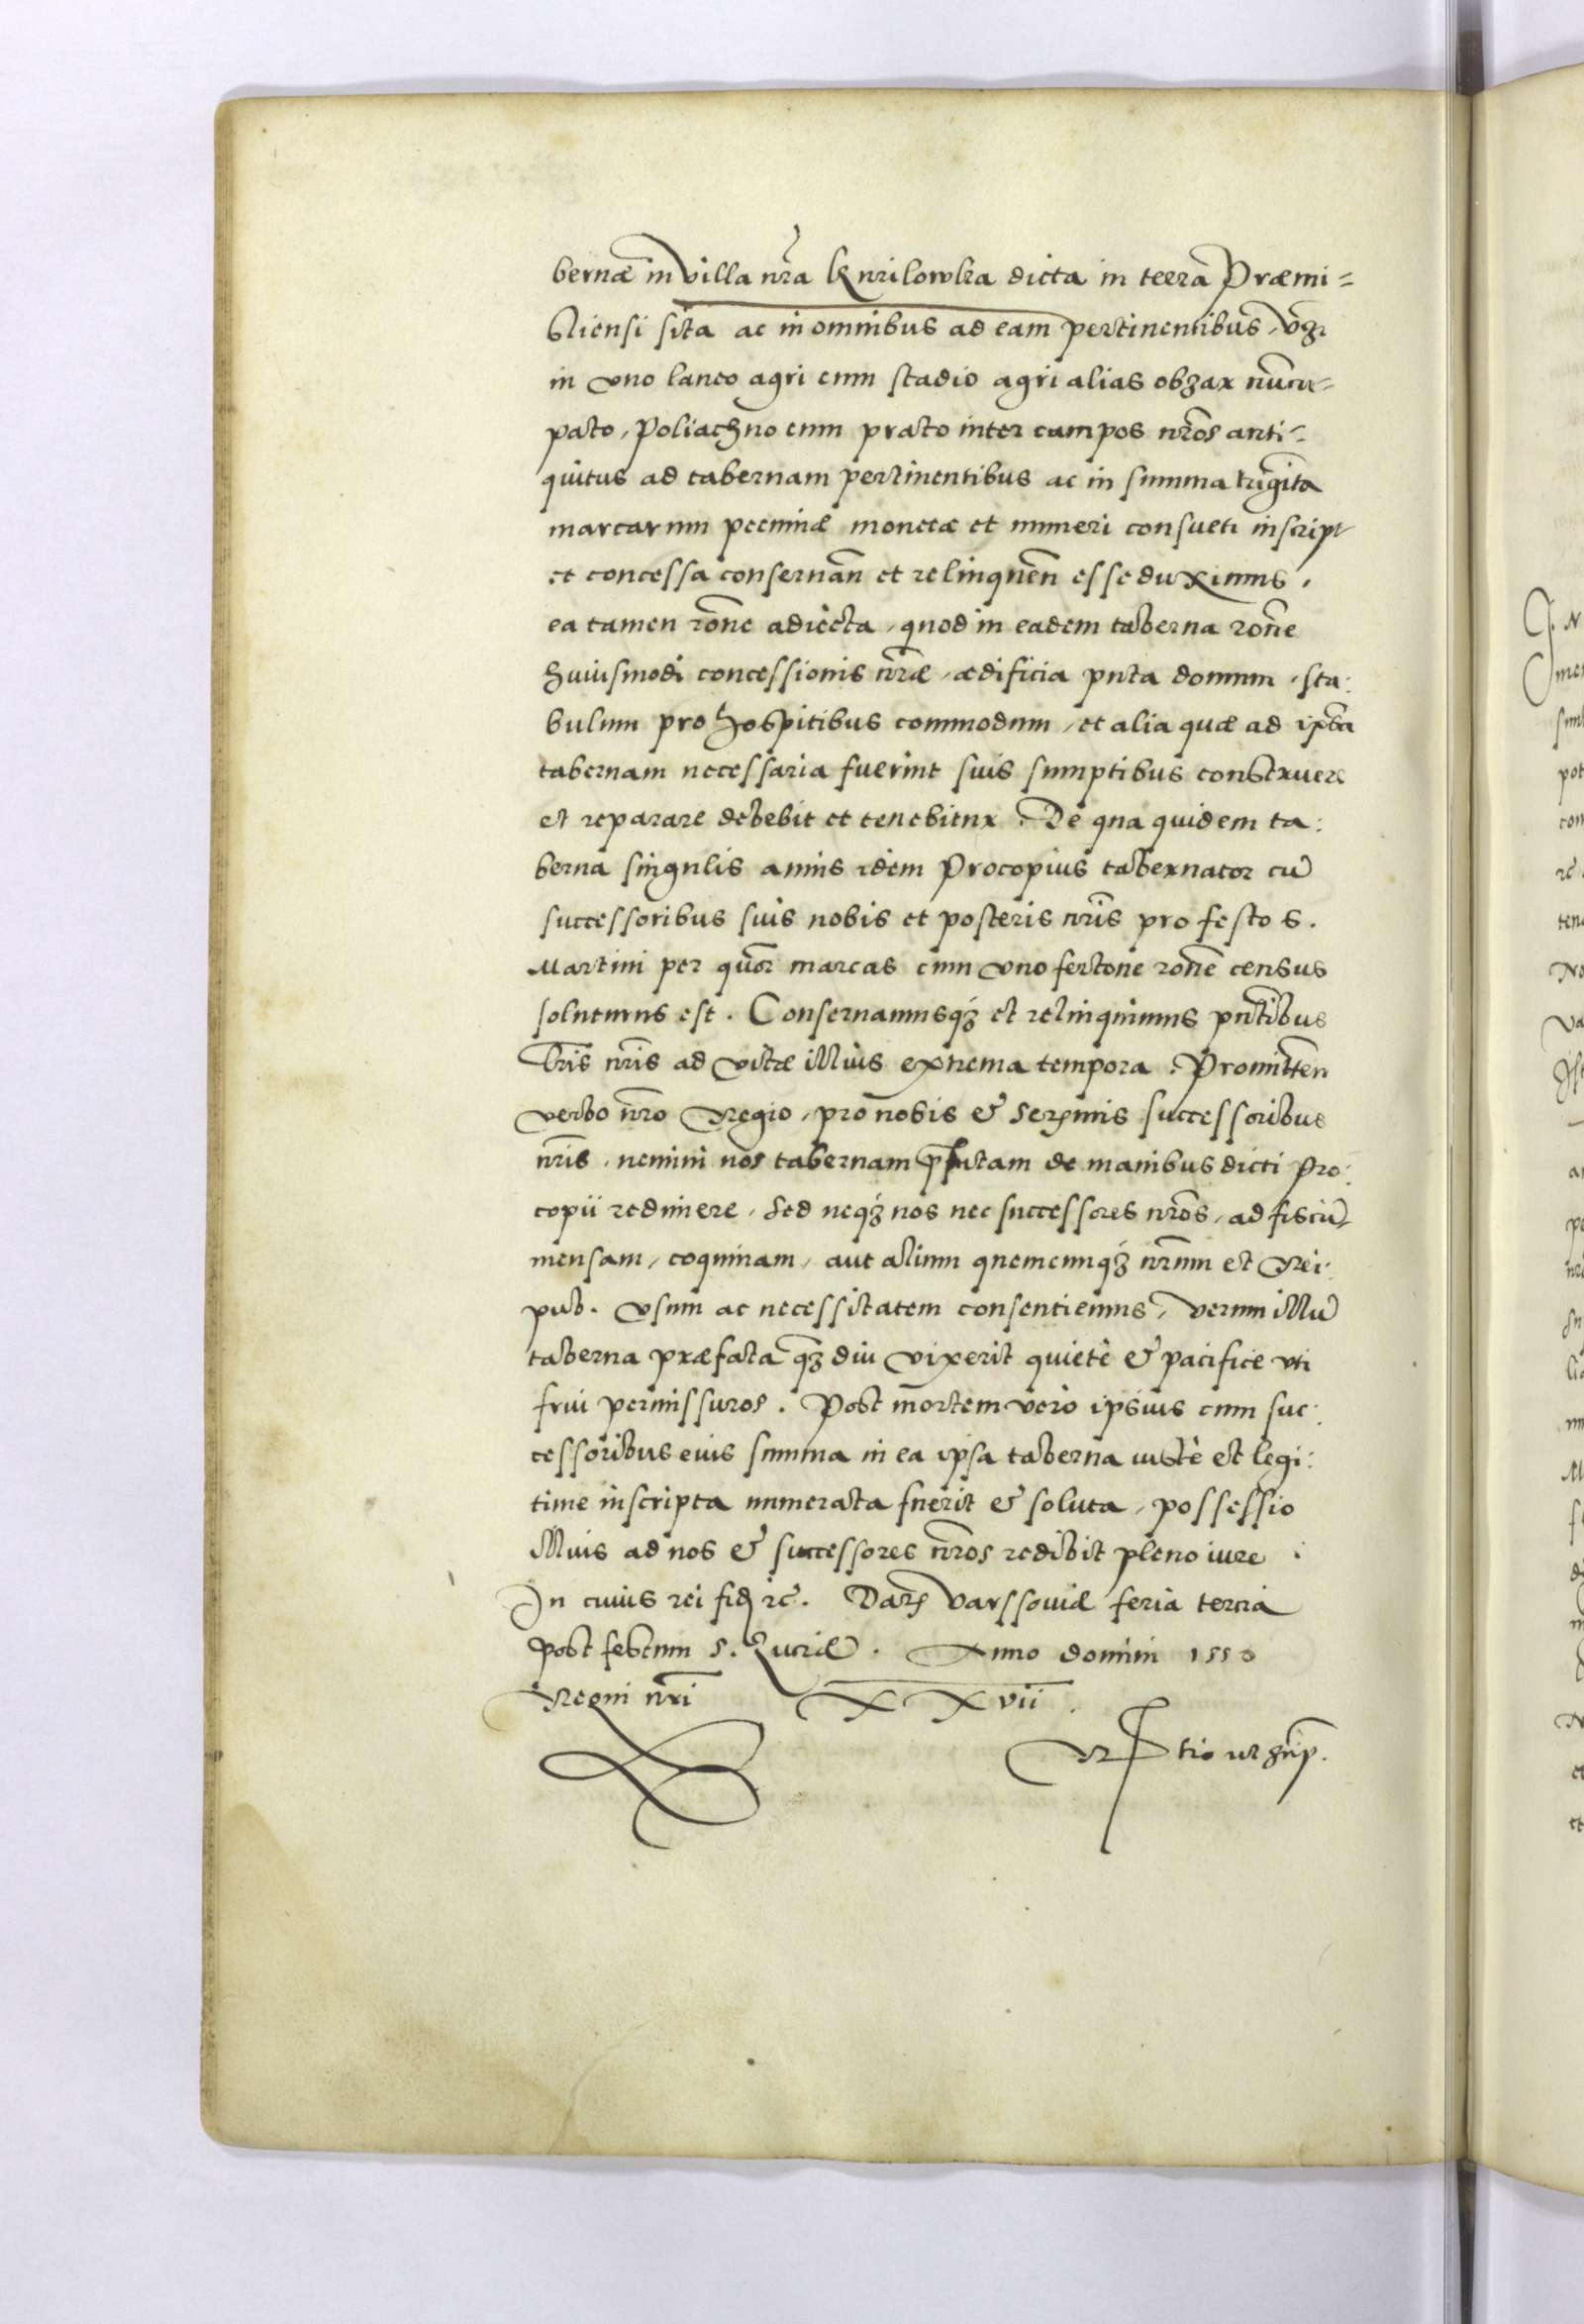 bernæ in villa nr̃a Kurilowka dicta in terra Præmi=
sliensi sita ac in omnibus ad eam pertinentibus, vz̃
in vno laneo agri cum stadio agri alias obzar nuncu=
pato, Poliachno cum prato inter campos nr̃os anti=
quitus ad tabernam pertinentibus ac in summa triginta
marcarum pecuniæ monetæ et numeri consueti inscript
et concessa conseruan̄ et relinquen̄ esse duximus,
ea tamen rōne adiecta, quod in eadem taberna rōne
huiusmodi concessionis nr̃æ, ædificia puta domum, sta:
bulum pro hospitibus commodum, et alia quæ ad ip̄ã
tabernam necessaria fuerint suis sumptibus construere
et reparare debebit et tenebitur. De qua quidem ta:
berna singulis annis idem Procopius tabernator cū
successoribus suis nobis et posteris nr̃is pro festo S.
Martini per quōr marcas cum vno fertone rōne census
soluturus est. Conseruamusq3 et relinquimus pn̄tibus
lr̃is nr̃is ad vitæ illius extrema tempora. Promitten̄
verbo nr̃o Regio, pro nobis & Serm̄is successoribus
nr̃is, nemini nos tabernam de manibus dicti Pro:
copii redimere, sed neq3 nos nec successores nr̃os, ad fiscū
mensam, coquinam, aut alium quemcunq3 nr̃um et Rei:
pub. vsum ac necessitatem consentiemus, verum illū
taberna præfata q̃3 diu vixerit quietè & pacifice vti
frui permissuros. Post mortem vero ipsius cum suc:
cessoribus eius summa in ea ipsa taberna iustè et legi:
time inscripta numerata fuerit & soluta, possessio
illius ad nos & successores nr̃os redibit pleno iure.
In cuius rei fid rc̄. Dat Varssouiæ feria tercia
post festum S. Luciæ. Anno domini 1553
Regni nr̃i XXvii.